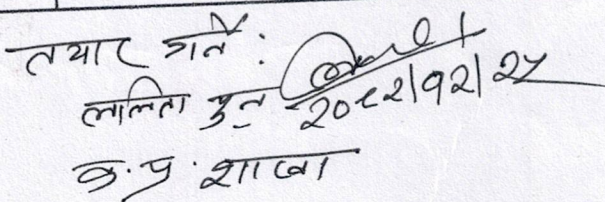 तयार गर्ने :
ललिता पुन २०८२/१२/२५
क.प्र. शाखा